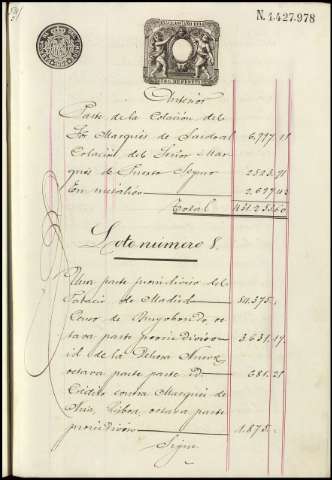 N. 1.427.978
Anterior
Parte de la Colación del
Sor Marqués de Sardoal 6,777.21
Colación del Señor Mar
qués de Puerto Seguro 2523.91
En metálico
Total
Lote número 8.
Una parte proindiviso del
Palacio de Madrid 80.375.
Censo de oc
tava parte proindiviso 3.631.17
id. de la Dehesa Nueva
octava parte id. 681.25
Crédito contra Marqués de
octava parte
proindiviso 1.875.
Sigue